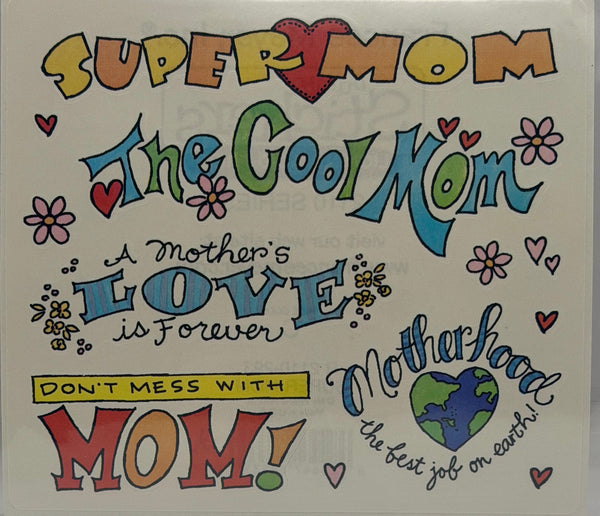 SUPER MOM
The Cool Mom
A Mother's
LOVE
is Forever
DON'T MESS WITH
MOM!
Motherhood
the best job on earth!